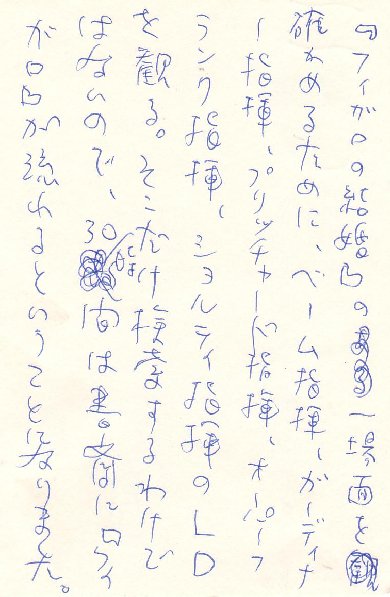 『フィガロの結婚』の一場面を
確かめるために、ベーム指揮、ガーディナ
ー指揮、プリッチャード指揮、オーパーフ
ランク指揮、ショルティ指揮のLD
を観る。そこだけ検査するわけで
はないので、30時間は書斎に『フィ
ガロ』が流れるということになりました。